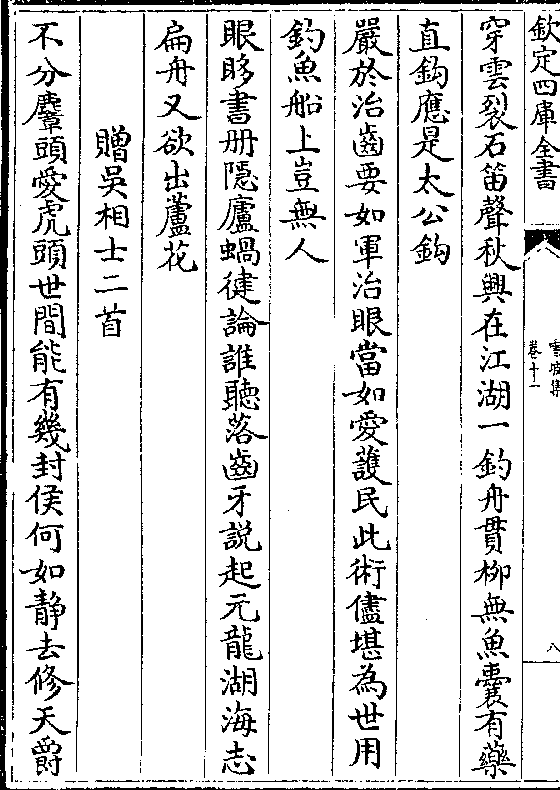 欽定四庫全書
雪坡集
卷十二
八
穿雲裂石笛聲秋興在江湖一釣舟貫栁無魚囊有藥
直鈎應是太公鈎
嚴於治齒要如軍治眼當如愛䕶民此術儘堪為世用
釣魚船上豈無人
眼眵書册隠廬蝸健論誰聽落齒牙説起元龍湖海志
扁舟又欲出蘆花
贈吳相士二首
不分麞頭愛虎頭世間能有幾封侯何如静去修天爵